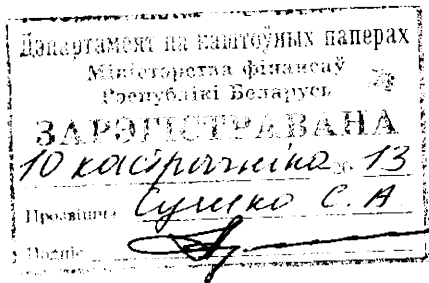 Дэпартамент па каштоўных паперах
Міністэрства фінансаў
Рэспублікі Беларусь
ЗАРЭГІСТРАВАНА
10 кастрычніка 20 13
Прозвішча Сушко С. А
Подпіс